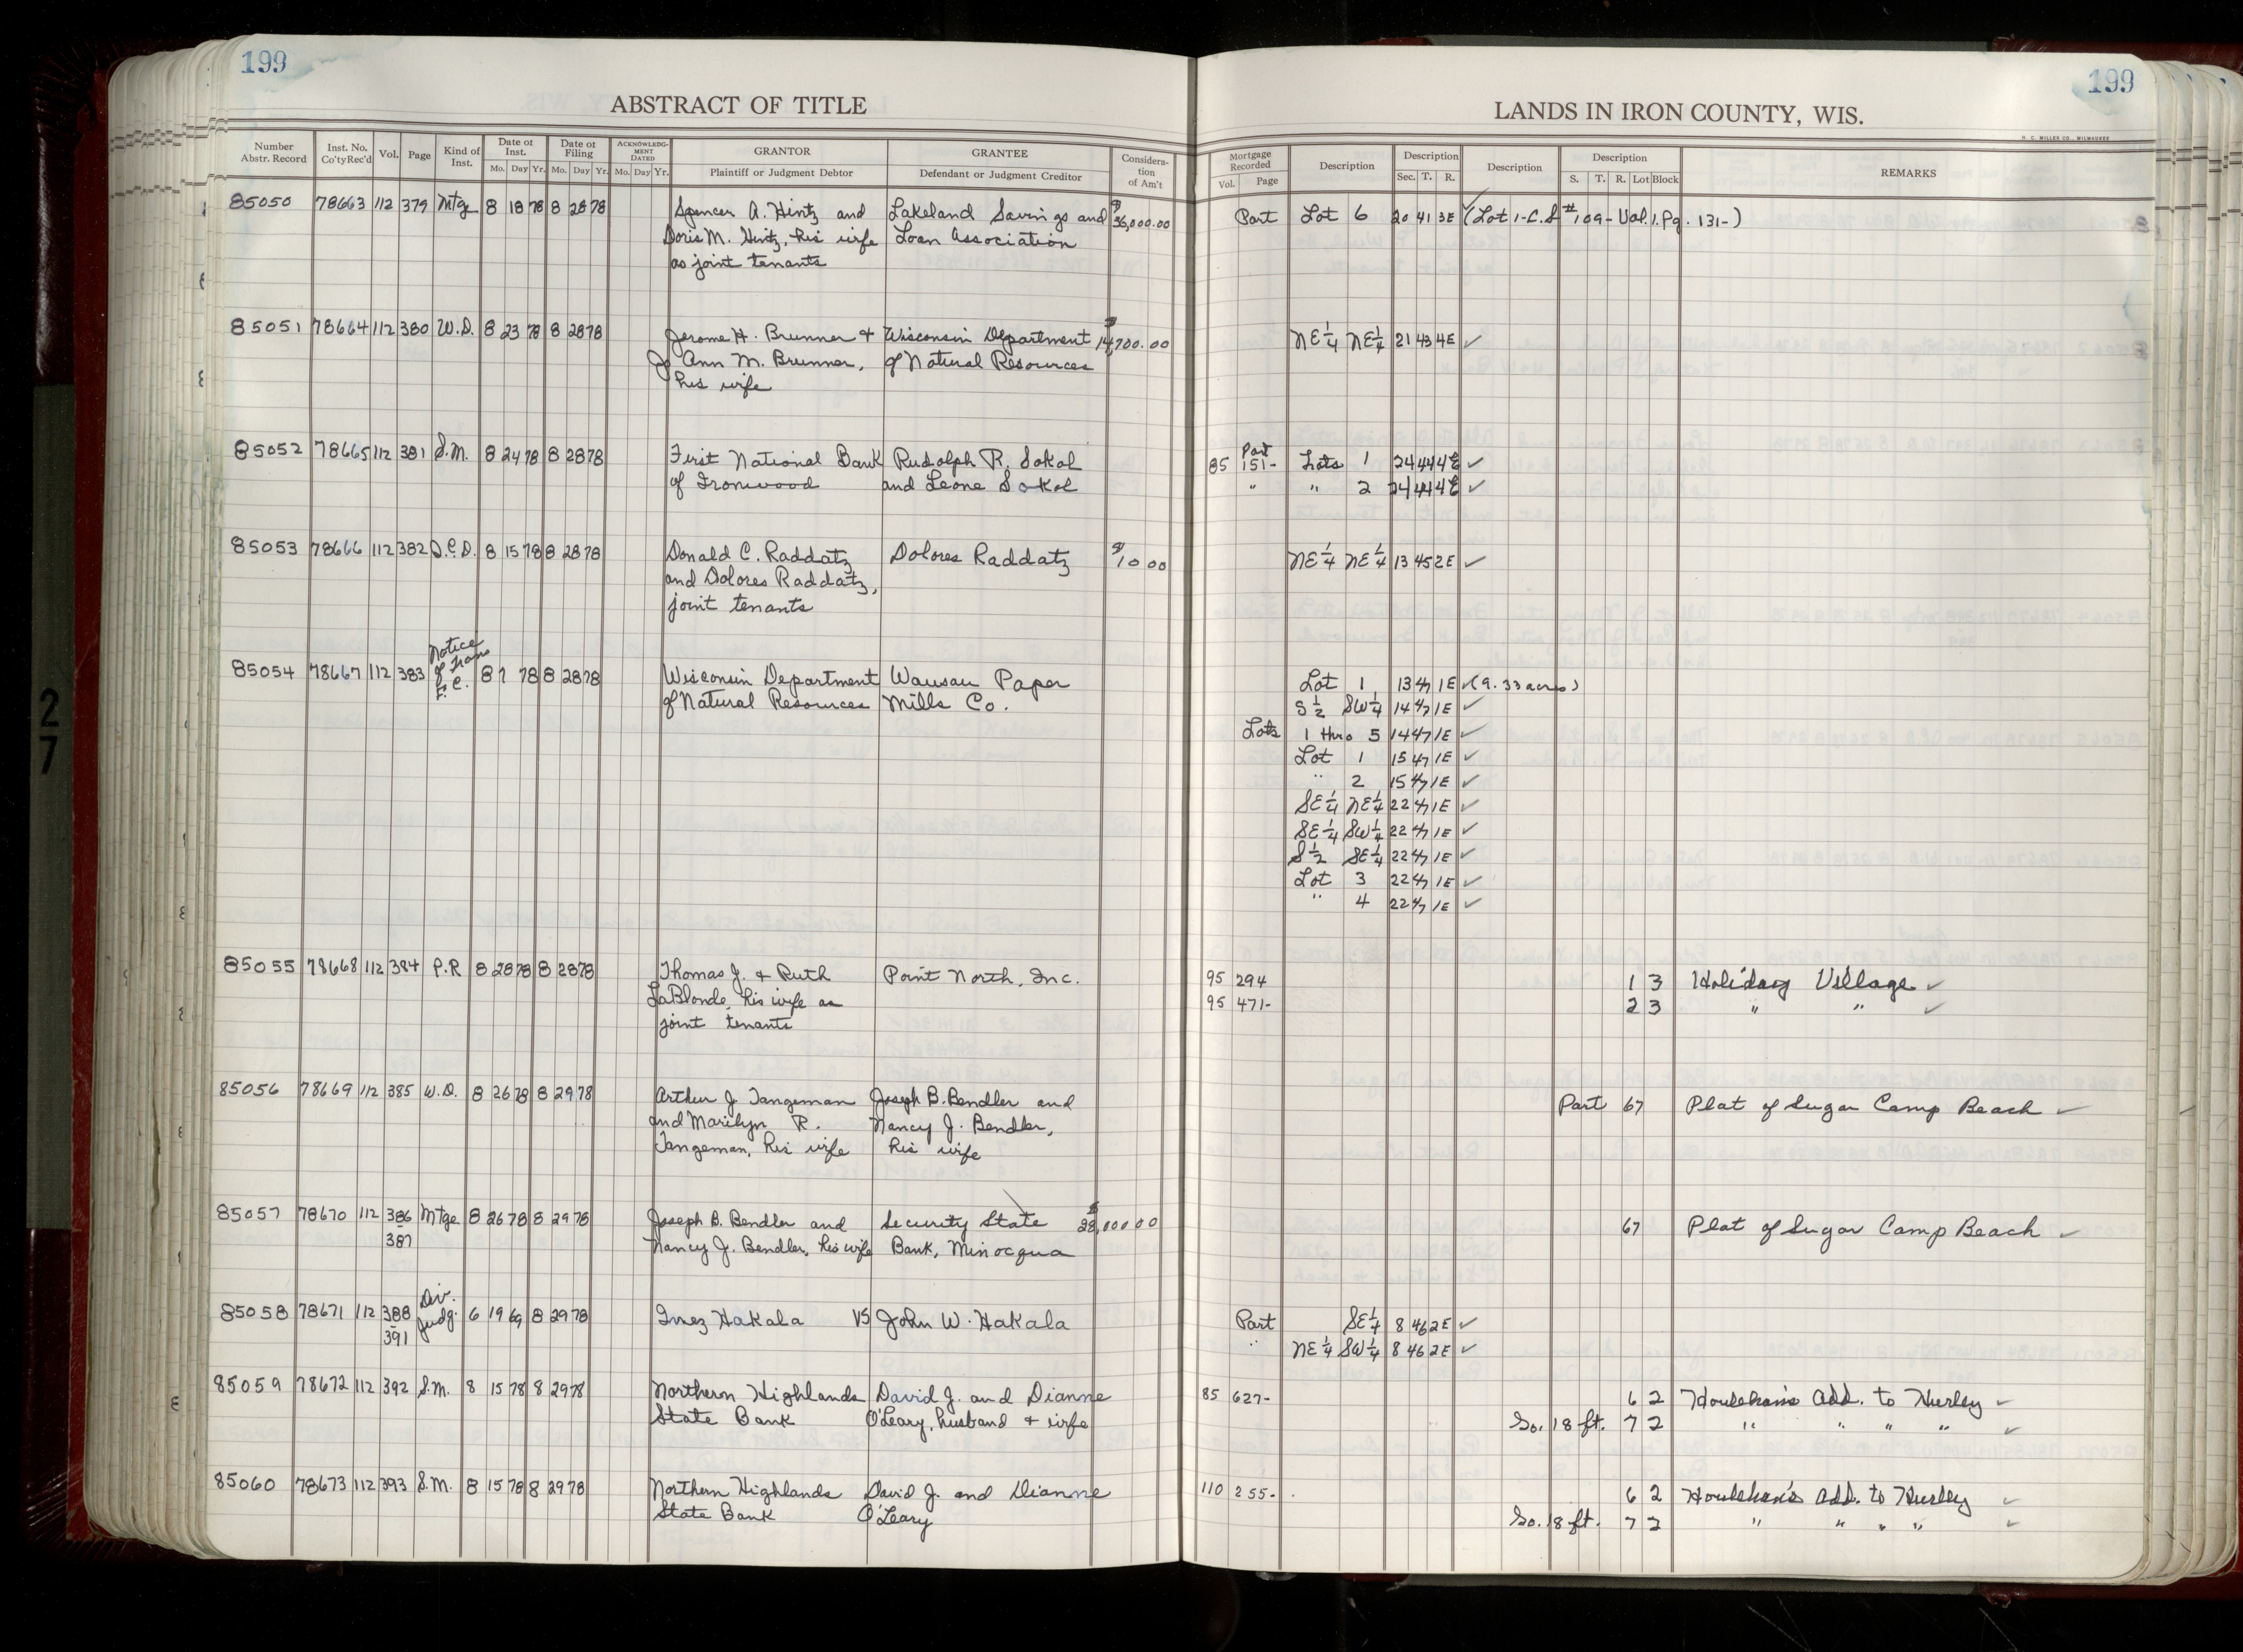 199
199
ABSTRACT OF TITLE
LANDS IN IRON COUNTY, WIS.
H. C. MILLER CO., MILWAUKEE
Number Abstr. Record | Inst. No. Co'ty Rec'd | Vol. | Page | Kind of Inst. | Date of Inst. Mo. Day Yr. | Date of Filing Mo. Day Yr. | ACKNOWLEDGMENT DATED Mo. Day Yr. | GRANTOR Plaintiff or Judgment Debtor | GRANTEE Defendant or Judgment Creditor | Consideration of Am't | Mortgage Recorded Vol. Page | Description | Description Sec. T. R. | Description | Description S. T. R. Lot Block | REMARKS
85050 78663 112 379 Mtge 8 18 78 8 28 78 Spencer A. Hintz and Lakeland Savings and $36,000.00 Part Lot 6 20 41 3E ✓(Lot 1-C.S #109-Vol.1.Pg. 131-)
Doris M. Hintz, his wife Loan Association
as joint tenants
85051 78664 112 380 W.D. 8 23 78 8 28 78 Jerome H. Brunner + Wisconsin Department $14,700.00 NE 1/4 NE 1/4 21 43 4E ✓
Jo Ann M. Brunner, of Natural Resources
his wife
85052 78665 112 381 S.M. 8 24 78 8 28 78 First National Bank Rudolph R. Sokol 85 Part 151- Lots 1 24 44 4E ✓
of Ironwood and Leone Sokol " " 2 24 44 4E ✓
85053 78666 112 382 Q.C.D. 8 15 78 8 28 78 Donald C. Raddatz Dolores Raddatz $10 00 NE 1/4 NE 1/4 13 45 2E ✓
and Dolores Raddatz,
joint tenants
85054 78667 112 383 Notice of Trans F.C. 8 7 78 8 28 78 Wisconsin Department Wausau Paper Lot 1 13 47 1E ✓(9.33 acres)
of Natural Resources Mills Co. S 1/2 SW 1/4 14 47 1E ✓
Lots 1 thro 5 14 47 1E ✓
Lot 1 15 47 1E ✓
" 2 15 47 1E ✓
SE 1/4 NE 1/4 22 47 1E ✓
SE 1/4 SW 1/4 22 47 1E ✓
S 1/2 SE 1/4 22 47 1E ✓
Lot 3 22 47 1E ✓
" 4 22 47 1E ✓
85055 78668 112 384 P.R 8 28 78 8 28 78 Thomas J. + Ruth Point North, Inc. 95 294 1 3 Holiday Village ✓
LaBlonde, his wife as 95 471- 2 3 " " ✓
joint tenants
85056 78669 112 385 W.D. 8 26 78 8 29 78 Arthur J. Tangeman Joseph B. Bendler and Part 67 Plat of Sugar Camp Beach ✓
and Marilyn R. Nancy J. Bendler,
Tangeman, his wife his wife
85057 78670 112 386 Mtge 8 26 78 8 29 78 Joseph B. Bendler and Security State $28,000 00 67 Plat of Sugar Camp Beach ✓
387 Nancy J. Bendler, his wife Bank, Minocqua
85058 78671 112 388 Div. Judg. 6 19 69 8 29 78 Inez Hakala VS John W. Hakala Part SE 1/4 8 46 2E ✓
391 " NE 1/4 SW 1/4 8 46 2E ✓
85059 78672 112 392 S.M. 8 15 78 8 29 78 Northern Highlands David J. and Dianne 85 627- 6 2 Houlehan's Add. to Hurley ✓
State Bank O'Leary, husband + wife So. 18 ft. 7 2 " " " " ✓
85060 78673 112 393 S.M. 8 15 78 8 29 78 Northern Highlands David J. and Dianne 110 255- 6 2 Houlehan's Add. to Hurley ✓
State Bank O'Leary So. 18 ft. 7 2 " " " " ✓
27